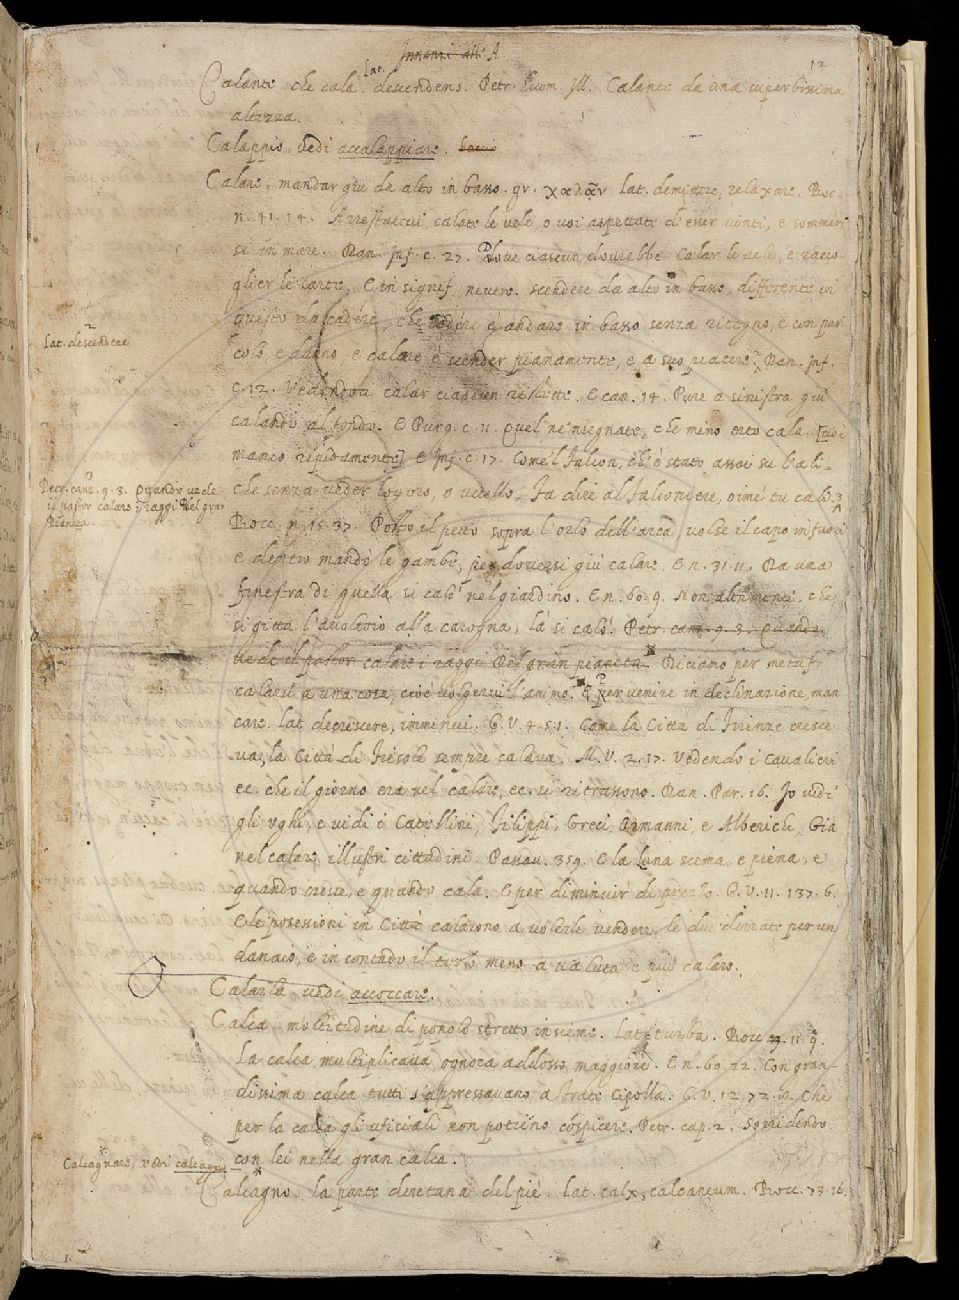 Innanzi all' A
12
Calante che cala. Lat. descendens. Petr. huom. ill. Calante da una superbissima
altezza.
Calappio vedi accalappiare. laccio
Calare. mandar giù da alto in basso. gr. χαλᾶν lat. demittere, relaxare. Bocc.
n. 41. 14. Arrestatevi, calate le vele, o voi aspettate d'esser vinti, e sommersi
in mare. Dan. Inf. c. 27. Dove ciascun dovrebbe Calar le vele, e racco-
glier le sarte. E in signif. neutro. scendere da alto in basso, differente in
questo da cadére, che cadére è andare in basso senza ritegno, e con peri
colo, e danno, e calare è scender pianamente, e a suo piacere. Dan. Inf.
Lat. descendere
c. 12. Vedendoci calar ciascun ristette. E can. 14. Pure a sinistra giù
calando al fondo. E Purg. c. 11. Quel ne'nsegnate, che men erto cala. [cioè
manco ripidamente] E Inf. c. 17. Come'l falcon, ch'è stato assai su l'ali,
Petr. canz. 9. 3. Quando vede
il pastor calare i raggi Del gran
Pianeta.
che senza veder logoro, o uccello, Fa dire al falconiere, oimè tu cali.
Bocc. n. 15. 37. Posto il petto sopra l'orlo dell'arca, volse il capo in fuori
e dentro mandò le gambe, per doversi giù calare. E n. 31. 11. Da una
finestra di quella si calò nel giardino. E n. 60. 9. Non altrimenti, che
si gitta l'avoltoio alla carogna, là si calò. Petr. canz. 9. 3. Quando
vede il pastor calare i raggi Del gran pianeta. Diciamo per metaf.
calarsi a una cosa, cioè volgervi l'animo. E per venire in declinazione, man
care. lat. decrescere, imminui. G. V. 4. 5. 1. Come la Città di Firenze cresce
va, la Città di Fiesole sempre calava. M. V. 2. 17. Vedendo i cavalieri
ec. che il giorno era nel calare, ec. si ritrassono. Dan. Par. 16. Io vidi
gli Vghi, e vidi i Catellini, Filippi, Greci, Ormanni, e Alberichi, Già
nel calare illustri cittadini. Passav. 359. E la luna scema, e piena, e
quando cresce, e quando cala. E per diminuir di prezzo. G. V. 11. 137. 6.
E le possessioni in Città calarono a volerle vendere, le due derrate per un
danaio, e in contado il terzo meno a valuta e più calare.
Calarla vedi accoccare.
Calca. moltitudine di popolo stretto insieme. Lat. turba. Bocc. n. 11. 9.
La calca multiplicava ognora addosso maggiore. E n. 60. 12. Con gran-
dissima calca tutti s'appressavano a frate Cipolla. G. V. 12. 72. 6. Che
per la calca gli uficiali non potieno cospicere. Petr. cap. 2. Sorridendo
con lei nella gran calca.
Calcagnare, vedi calcagno
Calcagno. la parte deretana del piè. Lat. calx, calcaneum. Bocc. 73. 16.